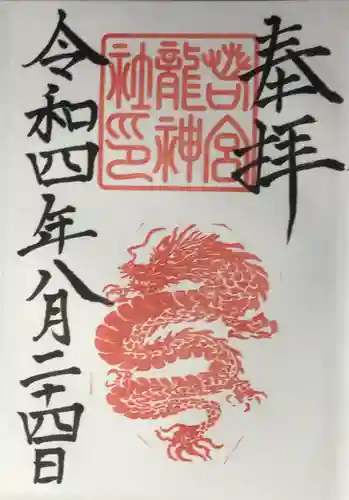 奉拝
若宮
龍神
社印
令和四年八月二十四日